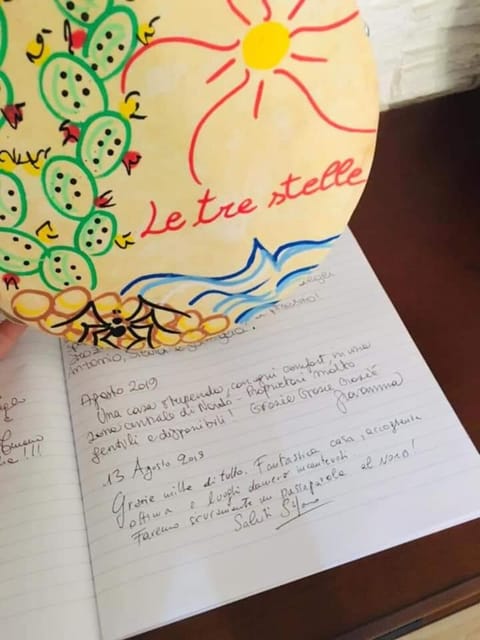 Le tre stelle
Agosto 2019
Una casa stupenda, con ogni comfort, in una
zona centrale di Nardò - Proprietari molto
gentili e disponibili! Grazie Grazie Grazie
Giovanna
13 Agosto 2019
Grazie mille di tutto. Fantastica casa, accoglienza
ottima e luoghi davvero incantevoli.
Faremo sicuramente un passaparola al nord!
Saluti